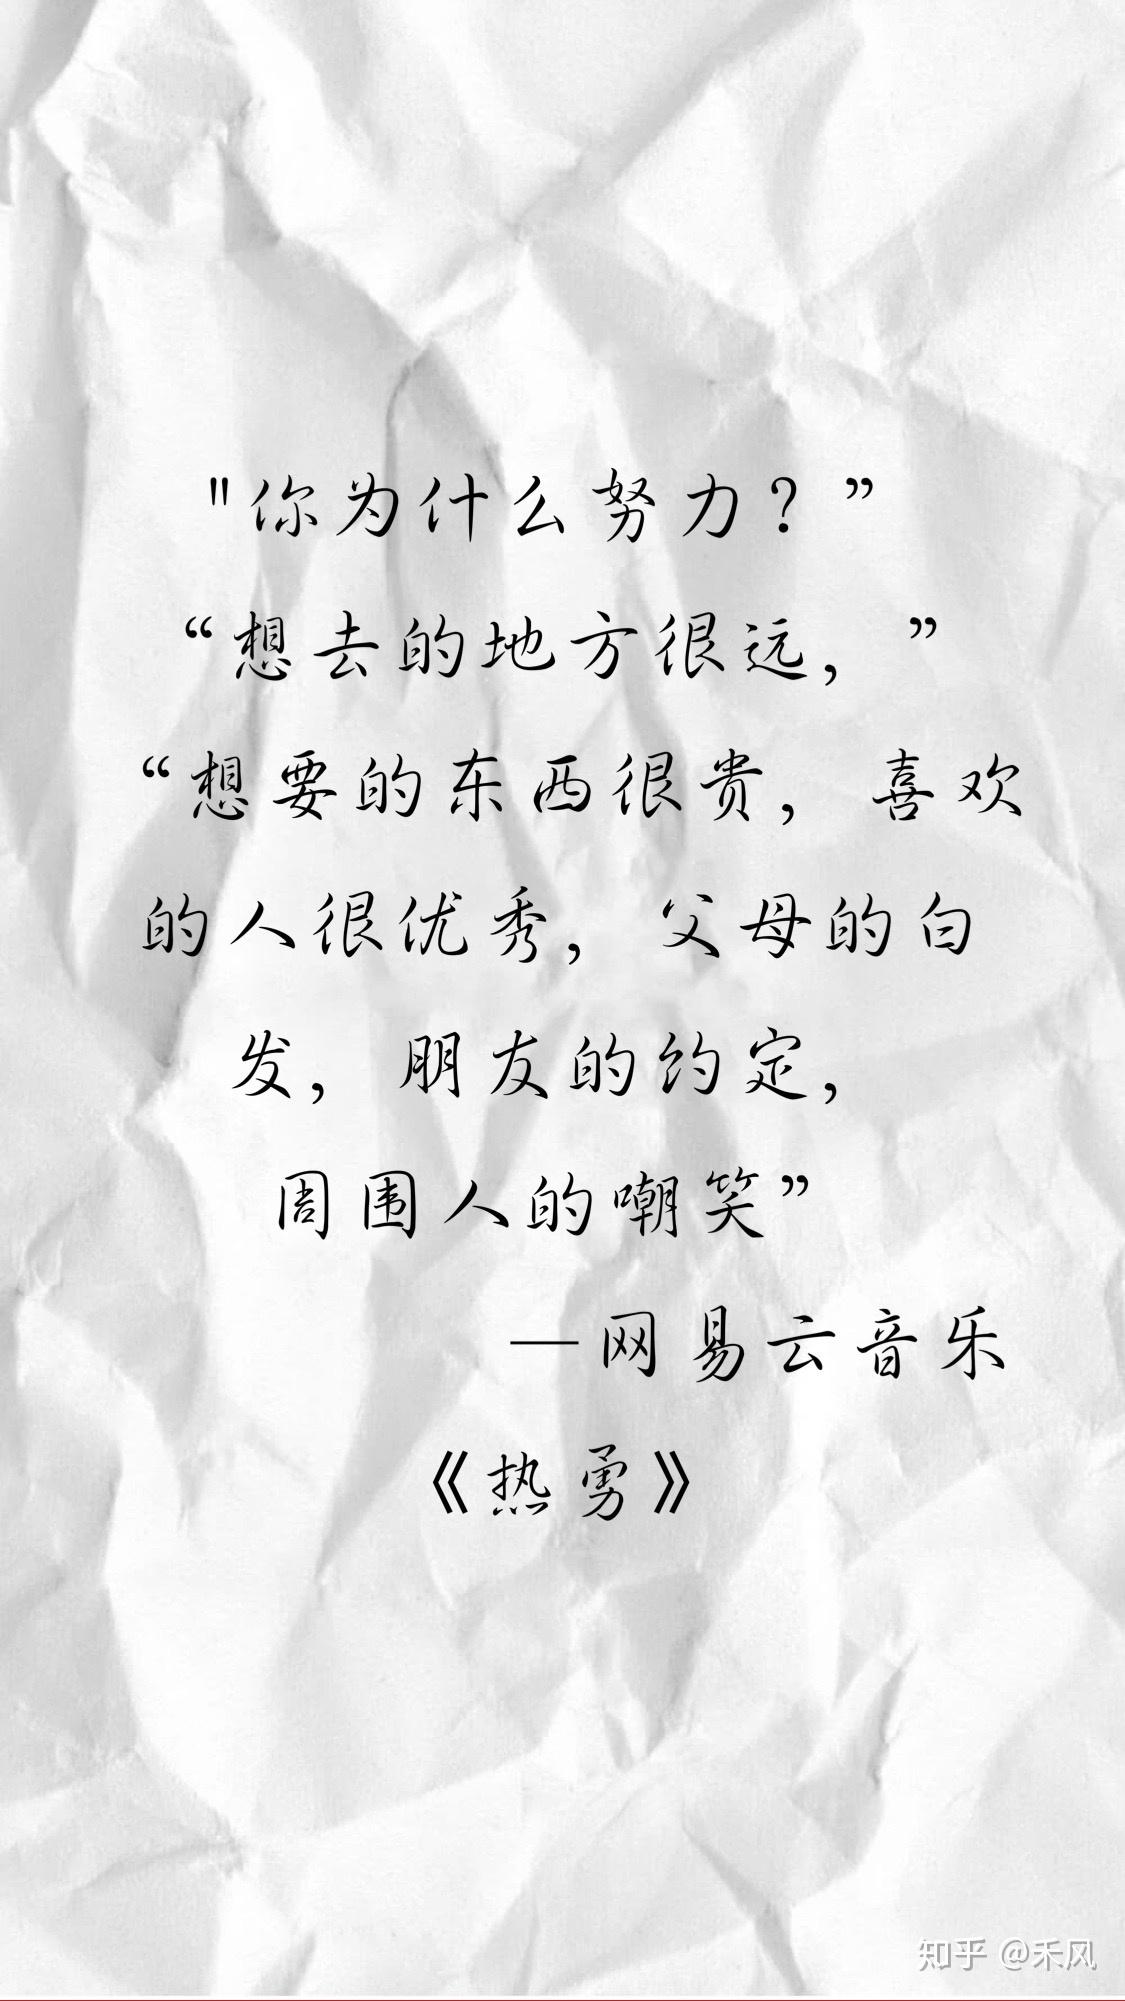 "你为什么努力？”
“想去的地方很远，”
“想要的东西很贵，喜欢
的人很优秀，父母的白
发，朋友的约定，
周围人的嘲笑”
—网易云音乐
《热勇》
知乎 @禾风